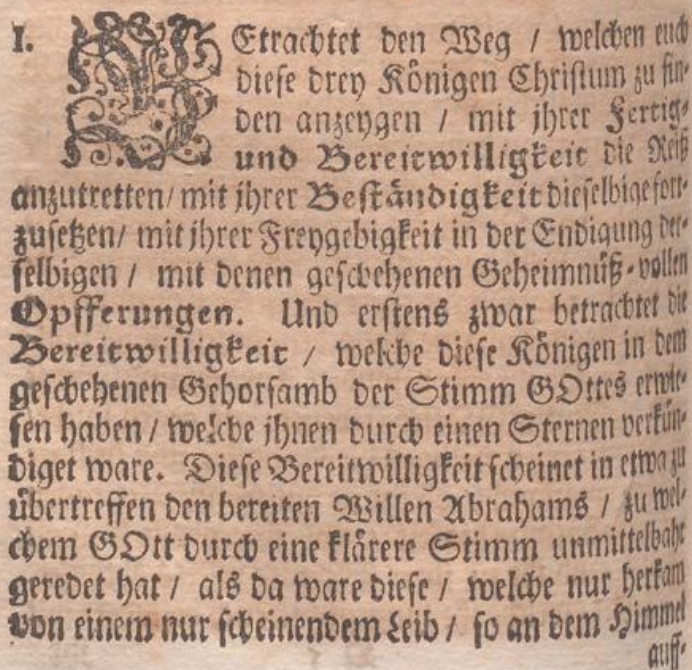 I. BEtrachtet den Weg / welchen euch
diese drey Königen Christum zu fin-
den anzeygen / mit jhrer Fertig-
und Bereitwilligkeit die Reiß
anzutretten/ mit jhrer Beständigkeit dieselbige fort-
zusetzen/ mit jhrer Freygebigkeit in der Endigung der-
selbigen / mit denen geschehenen Geheimnuß-vollen
Opfferungen. Und erstens zwar betrachtet die
Bereitwilligkeit / welche diese Königen in dem
geschehenen Gehorsamb der Stimm GOttes erwie-
sen haben / welche jhnen durch einen Sternen verkün-
diget ware. Diese Bereitwilligkeit scheinet in etwa zu
übertreffen den bereiten Willen Abrahams / zu wel-
chem GOtt durch eine klärere Stimm unmittelbahr
geredet hat / als da ware diese / welche nur herkam
von einem nur scheinendem Leib / so an dem Himmel
auff-